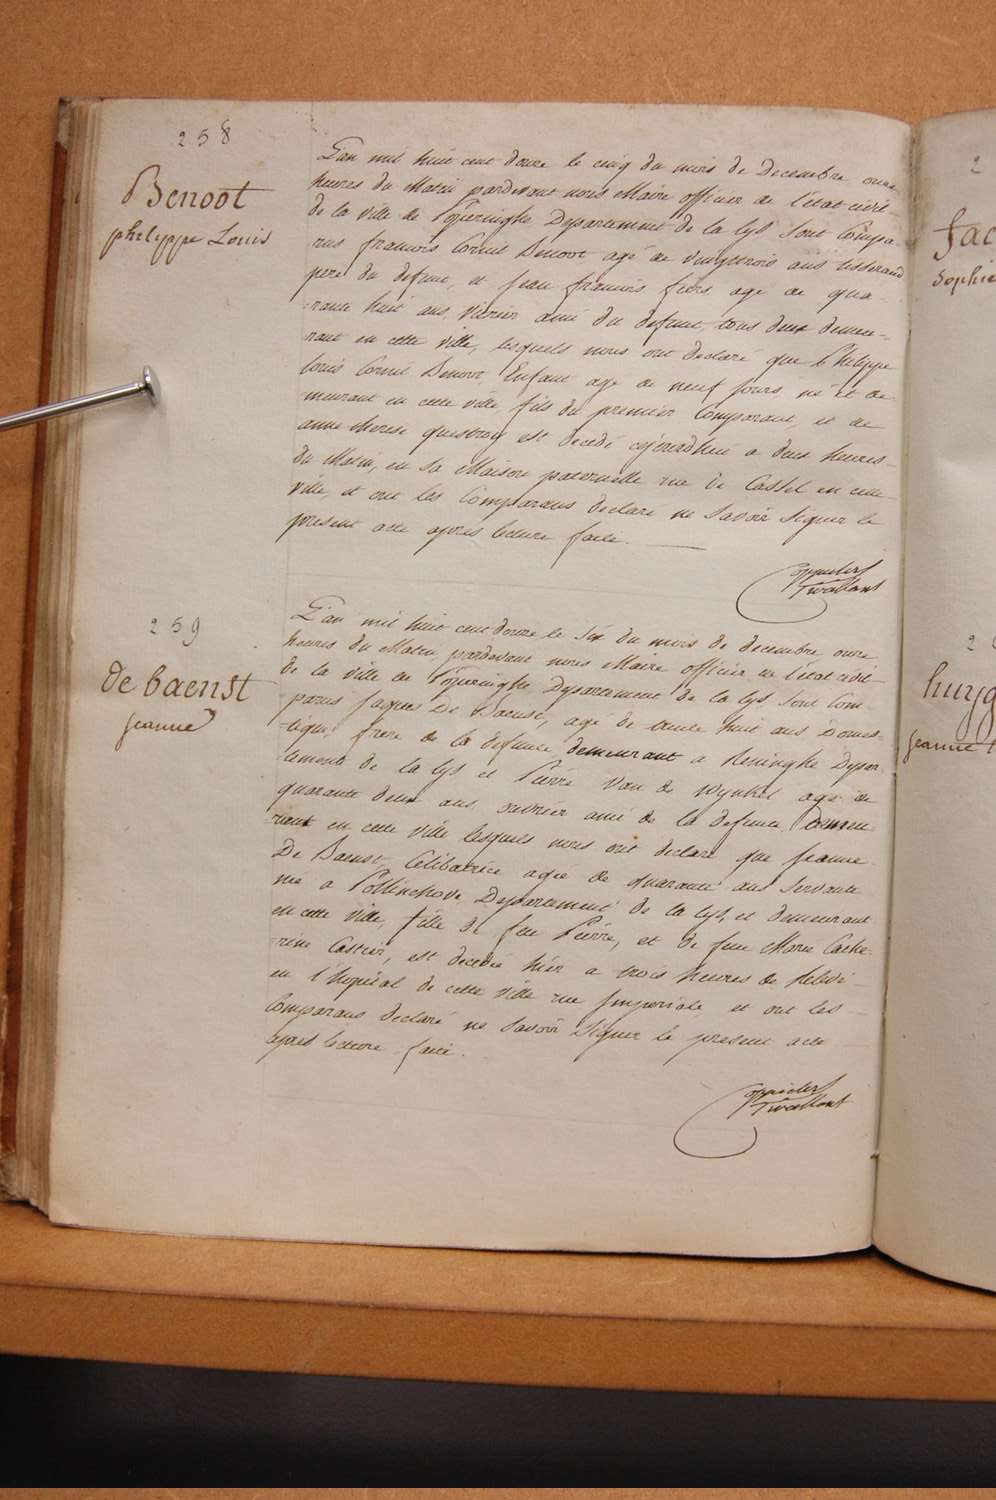 258
Benoot
philippe Louis
L'an mil huit cent douze le cinq du mois de Decembre onze
heures du Matin pardevant nous Maire officier de l'état civil
de la ville de Poperinghe Departement de la Lys sont Compa-
rus francois Cornil Benoot agé de vingttrois ans tisserand
pere du defunt, et Jean francois fiers agé de qua-
rante huit ans, ami du defunt, tous deux demeu-
rant en cette ville, lesquels nous ont declaré que Philippe
Louis Cornil Benoot, Enfant agé de neuf jours, né et de-
meurant en cette ville, fils du premier Comparant, et de
anne therese questroy est decedé cejourd'huit a deux heures
du Matin, en sa Maison paternelle rue de Cassel en cette
ville, et ont les Comparans declaré ne savoir signer le
present acte apres lecture faite.
259
de baenst
jeanne
L'an mil huit cent douze le six du mois de decembre onze
heures du Matin, pardevant nous Maire officier de l'état civil
de la ville de Poperinghe Departement de la Lys, sont Com-
parus Jaques De Baenst, agé de trente huit ans Domes-
tique, frere de la defunte demeurant a Reninghe Depar-
tement de la Lys et Pierre Van de Wynkel agé de
quarante deux ans ouvrier ami de la defunte, demeu-
rant en cette ville lesquels nous ont declaré que Jeanne
De Baenst, Celibatrice agée de quarante ans servante
née a Pollinchove Departement de la Lys, et demeurant
en cette ville, fille de feu Pierre, et de feue Marie Cathe-
rine Castier, est decedée hier a trois heures de Relevé
en l'hopital de cette ville rue Imperiale et ont les
Comparans declaré ne savoir signer le present acte
apres lecture faite.
2
fac
Sophie
2
huyg
jeanne